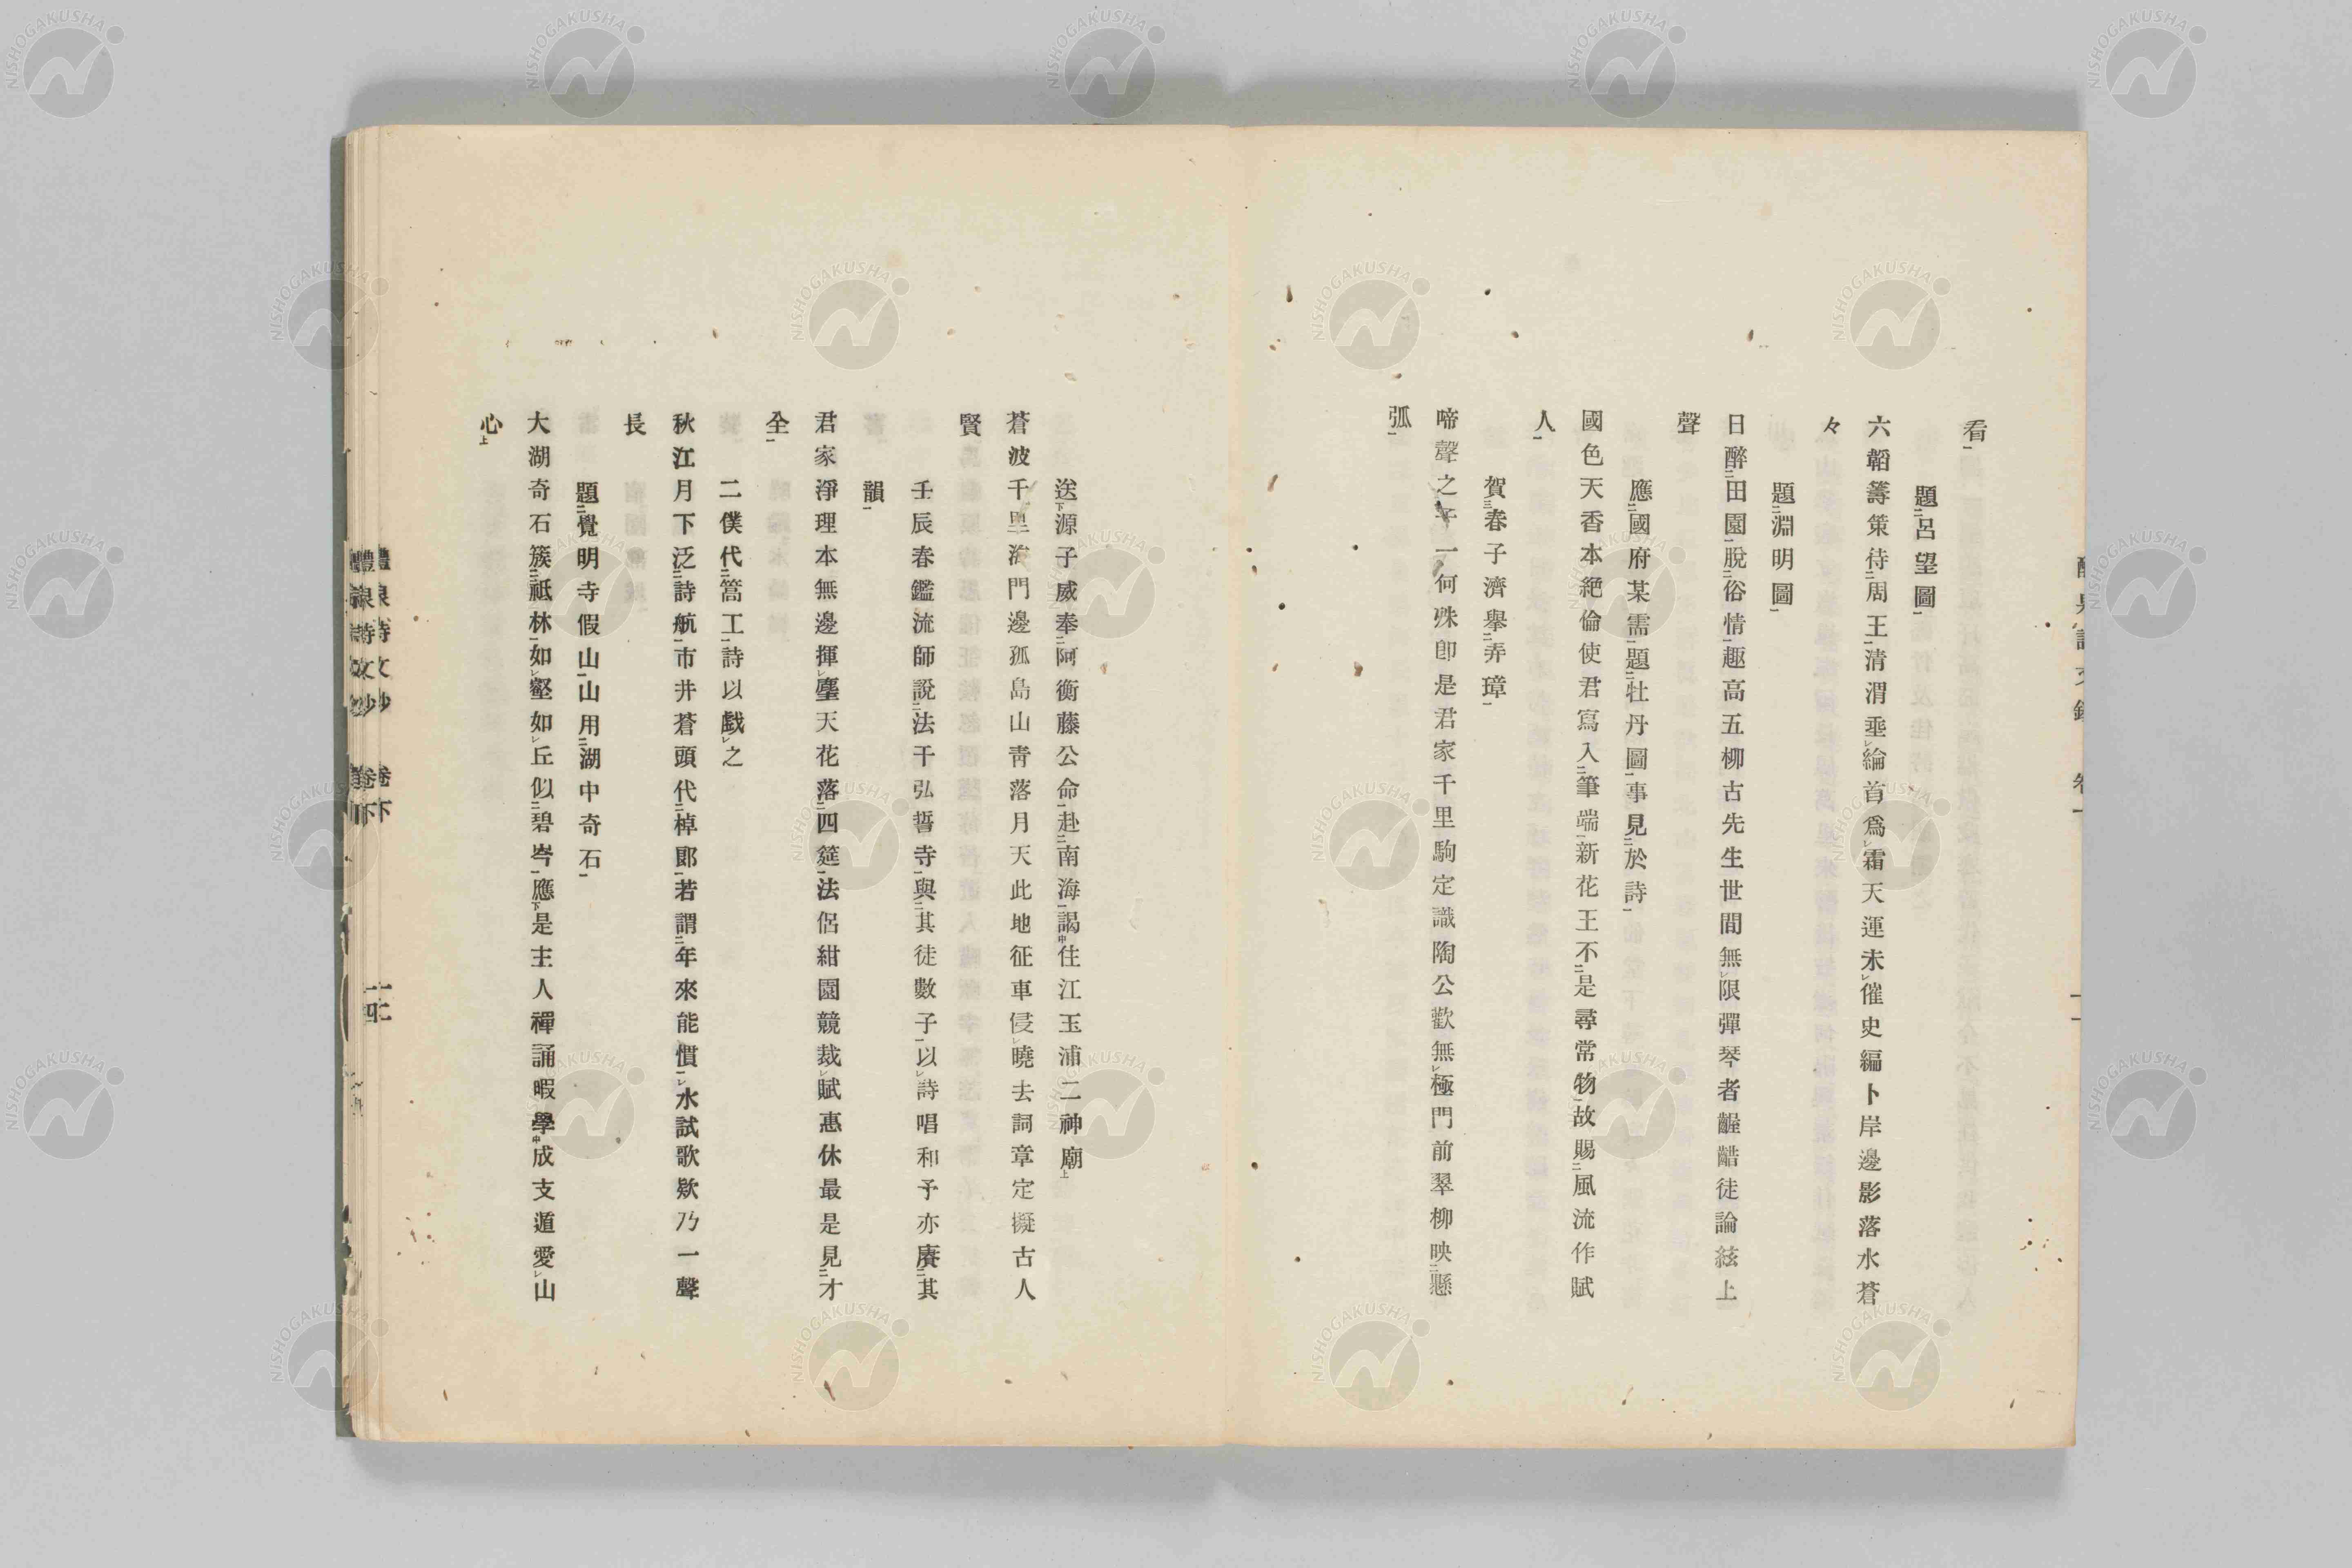 看
題呂望圖
六韜籌策待周王清渭垂綸首爲霜天運未催史編卜岸邊影落水蒼
々
題淵明圖
日醉田園脫俗情趣高五柳古先生世間無限彈琴者齷齪徒論絃上
聲
應國府某需題牡丹圖事見於詩
國色天香本絕倫使君寫入筆端新花王不是尋常物故賜風流作賦
人
賀春子濟擧弄璋
啼聲之乎一何殊卽是君家千里駒定識陶公歡無極門前翠柳映懸
弧
送源子威奉阿衡藤公命赴南海謁住江玉浦二神廟
蒼波千里海門邊孤島山靑落月天此地征車侵曉去詞章定擬古人
賢
壬辰春鑑流師說法于弘誓寺與其徒數子以詩唱和予亦賡其
韻
君家淨理本無邊揮麈天花落四筵法侶紺園競裁賦惠休最是見才
全
二僕代篙工詩以戲之
秋江月下泛詩航市井蒼頭代棹郞若謂年來能慣水試歌欸乃一聲
長
題覺明寺假山山用湖中奇石
大湖奇石簇祇林如壑如丘似碧岑應是主人禪誦暇學成支遁愛山
心
醴泉詩文鈔 卷下
十四
NISHOGAKUSHA